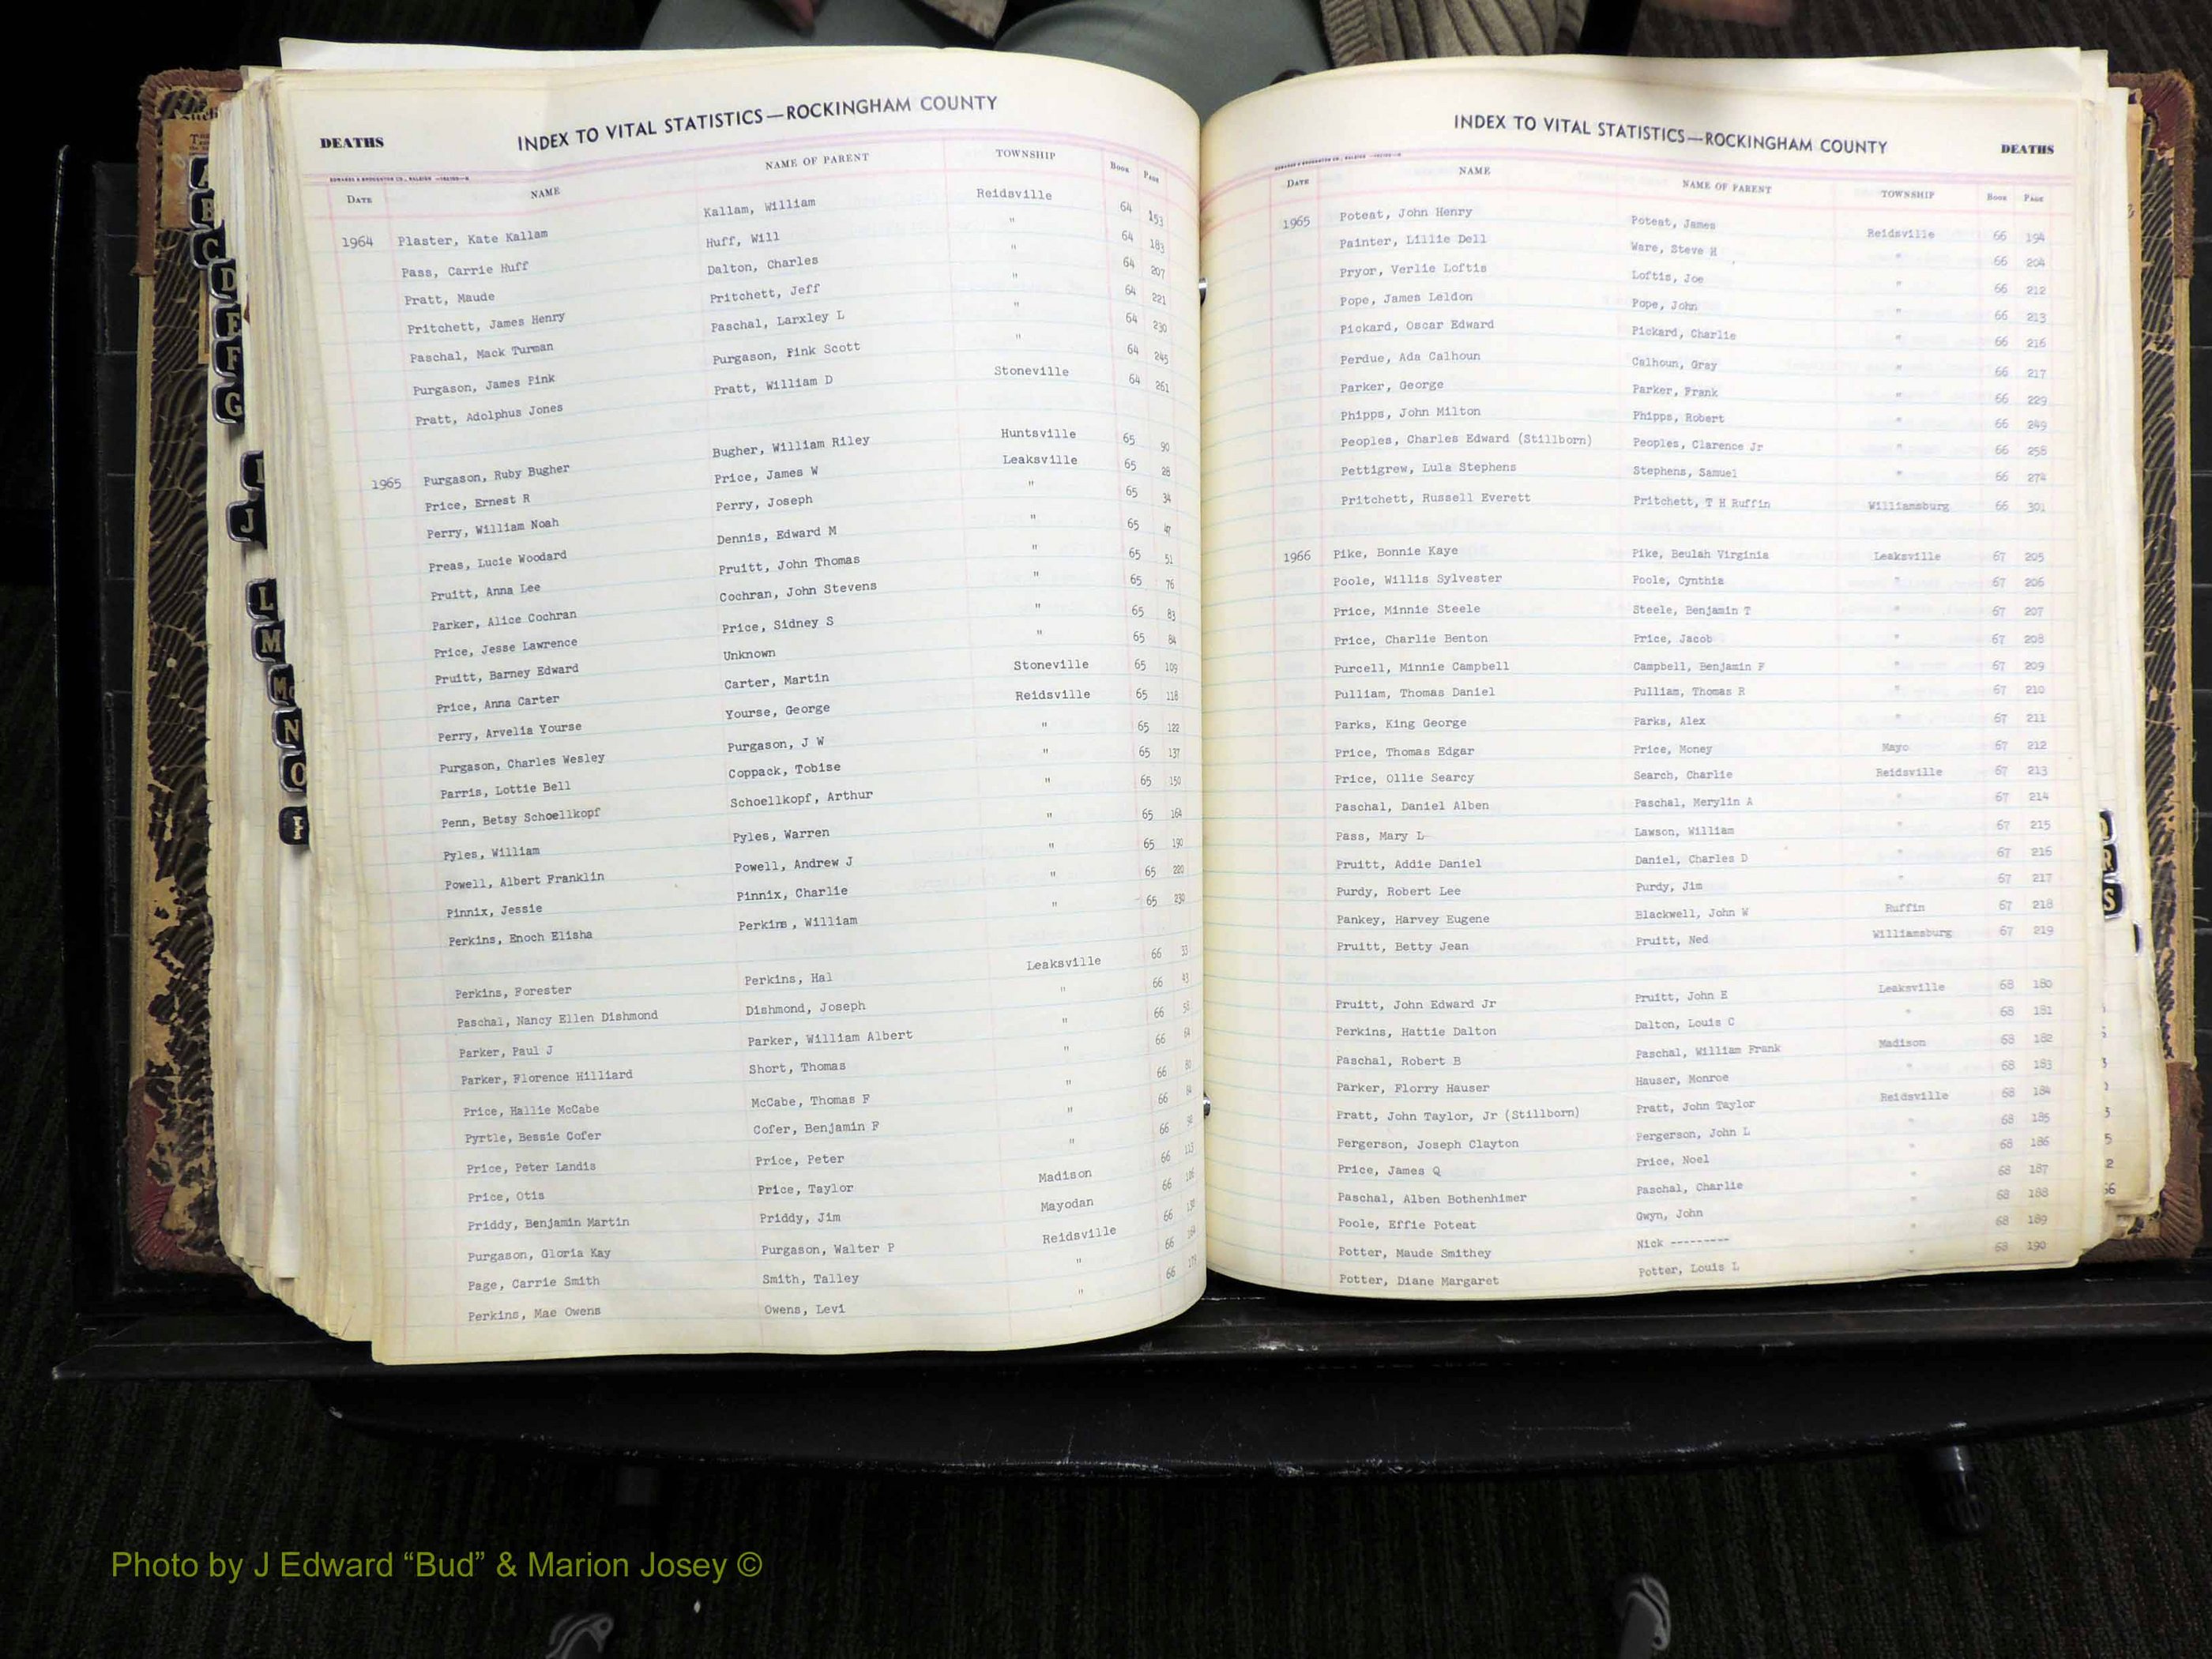 DEATHS
INDEX TO VITAL STATISTICS—ROCKINGHAM COUNTY
DATE NAME NAME OF PARENT TOWNSHIP BOOK PAGE
1964 Plaster, Kate Kallam Kallam, William Reidsville 64 153
Pass, Carrie Huff Huff, Will " 64 183
Pratt, Maude Dalton, Charles " 64 207
Pritchett, James Henry Pritchett, Jeff " 64 221
Paschal, Mack Turman Paschal, Larxley L " 64 230
Purgason, James Pink Purgason, Pink Scott " 64 245
Pratt, Adolphus Jones Pratt, William D Stoneville 64 261
1965 Purgason, Ruby Bugher Bugher, William Riley Huntsville 65 90
Price, Ernest R Price, James W Leaksville 65 28
Perry, William Noah Perry, Joseph " 65 34
Preas, Lucie Woodard Dennis, Edward M " 65 47
Pruitt, Anna Lee Pruitt, John Thomas " 65 51
Parker, Alice Cochran Cochran, John Stevens " 65 76
Price, Jesse Lawrence Price, Sidney S " 65 83
Pruitt, Barney Edward Unknown " 65 84
Price, Anna Carter Carter, Martin Stoneville 65 109
Perry, Arvelia Yourse Yourse, George Reidsville 65 118
Purgason, Charles Wesley Purgason, J W " 65 122
Parris, Lottie Bell Coppack, Tobise " 65 137
Penn, Betsy Schoellkopf Schoellkopf, Arthur " 65 150
Pyles, William Pyles, Warren " 65 164
Powell, Albert Franklin Powell, Andrew J " 65 190
Pinnix, Jessie Pinnix, Charlie " 65 220
Perkins, Enoch Elisha Perkins, William " 65 230
Perkins, Forester Perkins, Hal Leaksville 66 33
Paschal, Nancy Ellen Dishmond Dishmond, Joseph " 66 43
Parker, Paul J Parker, William Albert " 66 58
Parker, Florence Hilliard Short, Thomas " 66 64
Price, Hallie McCabe McCabe, Thomas F " 66
Pyrtle, Bessie Cofer Cofer, Benjamin F " 66
Price, Peter Landis Price, Peter " 66
Price, Otis Price, Taylor Madison 66 113
Priddy, Benjamin Martin Priddy, Jim Mayodan 66
Purgason, Gloria Kay Purgason, Walter P Reidsville 66
Page, Carrie Smith Smith, Talley " 66
Perkins, Mae Owens Owens, Levi " 66
INDEX TO VITAL STATISTICS—ROCKINGHAM COUNTY
DEATHS
DATE NAME NAME OF PARENT TOWNSHIP BOOK PAGE
1965 Poteat, John Henry Poteat, James Reidsville 66 194
Painter, Lillie Dell Ware, Steve H " 66 204
Pryor, Verlie Loftis Loftis, Joe " 66 212
Pope, James Leldon Pope, John " 66 213
Pickard, Oscar Edward Pickard, Charlie " 66 216
Perdue, Ada Calhoun Calhoun, Gray " 66 217
Parker, George Parker, Frank " 66 229
Phipps, John Milton Phipps, Robert " 66 249
Peoples, Charles Edward (Stillborn) Peoples, Clarence Jr " 66 258
Pettigrew, Lula Stephens Stephens, Samuel " 66 274
Pritchett, Russell Everett Pritchett, T H Ruffin Williamsburg 66 301
1966 Pike, Bonnie Kaye Pike, Beulah Virginia Leaksville 67 205
Poole, Willis Sylvester Poole, Cynthia " 67 206
Price, Minnie Steele Steele, Benjamin T " 67 207
Price, Charlie Benton Price, Jacob " 67 208
Purcell, Minnie Campbell Campbell, Benjamin F " 67 209
Pulliam, Thomas Daniel Pulliam, Thomas R " 67 210
Parks, King George Parks, Alex " 67 211
Price, Thomas Edgar Price, Money Mayo 67 212
Price, Ollie Searcy Search, Charlie Reidsville 67 213
Paschal, Daniel Alben Paschal, Merylin A " 67 214
Pass, Mary L Lawson, William " 67 215
Pruitt, Addie Daniel Daniel, Charles D " 67 216
Purdy, Robert Lee Purdy, Jim " 67 217
Pankey, Harvey Eugene Blackwell, John W Ruffin 67 218
Pruitt, Betty Jean Pruitt, Ned Williamsburg 67 219
Pruitt, John Edward Jr Pruitt, John E Leaksville 68 180
Perkins, Hattie Dalton Dalton, Louis C " 68 181
Paschal, Robert B Paschal, William Frank Madison 68 182
Parker, Florry Hauser Hauser, Monroe " 68 183
Pratt, John Taylor, Jr (Stillborn) Pratt, John Taylor Reidsville 68 184
Pergerson, Joseph Clayton Pergerson, John L " 68 185
Price, James Q Price, Noel " 68 186
Paschal, Alben Bothenhimer Paschal, Charlie " 68 187
Poole, Effie Poteat Gwyn, John " 68 188
Potter, Maude Smithey Nick --------- " 68 189
Potter, Diane Margaret Potter, Louis L " 68 190
A
B
C
D
E
F
G
I
J
L
M
Mc
N
O
R
S
Photo by J Edward “Bud” & Marion Josey ©